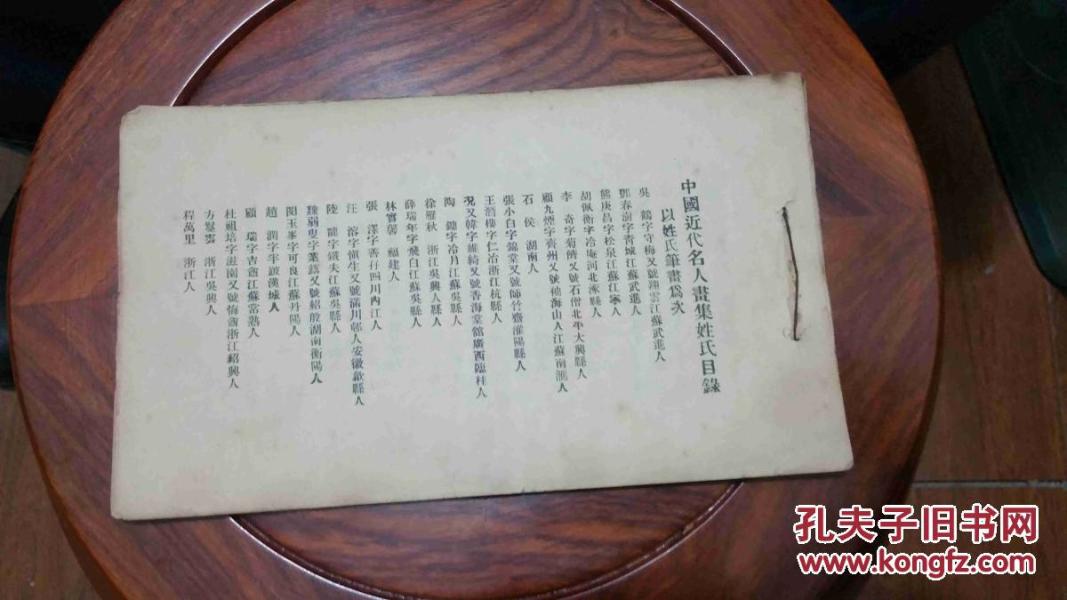 中國近代名人畫集姓氏目錄
以姓氏筆畫爲次
吳 鶴字守梅又號翔雲江蘇武進人
鄧春澍字青城江蘇武進人
熊庚昌字松泉江蘇江寧人
胡佩衡字冷庵河北涿縣人
李 奇字菊儕又號石僧北平大興縣人
顧九煙字齊州又號仙海山人江蘇南滙人
石 侯 湖南人
張小白字錦棠又號師竹齋淮陽縣人
王潛樓字仁冶浙江杭縣人
况又韓字維綺又號香海棠館廣西臨桂人
陶 鏞字冷月江蘇吳縣人
徐雁秋 浙江吳興縣人
薛瑞年字飛白江蘇吳縣人
林實馨 福建人
張 澤字善孖四川內江人
汪 溶字愼生又號滿川邨人安徽歙縣人
陸 龍字鐵夫江蘇吳縣人
江蘇丹陽人
趙 潤字半跛漢城人
顧 瑞字吉盦江蘇常熟人
杜祖培字滋園又號悔盦浙江紹興人
方 雲 浙江吳興人
程萬里 浙江人
孔夫子旧书网
www.kongfz.com